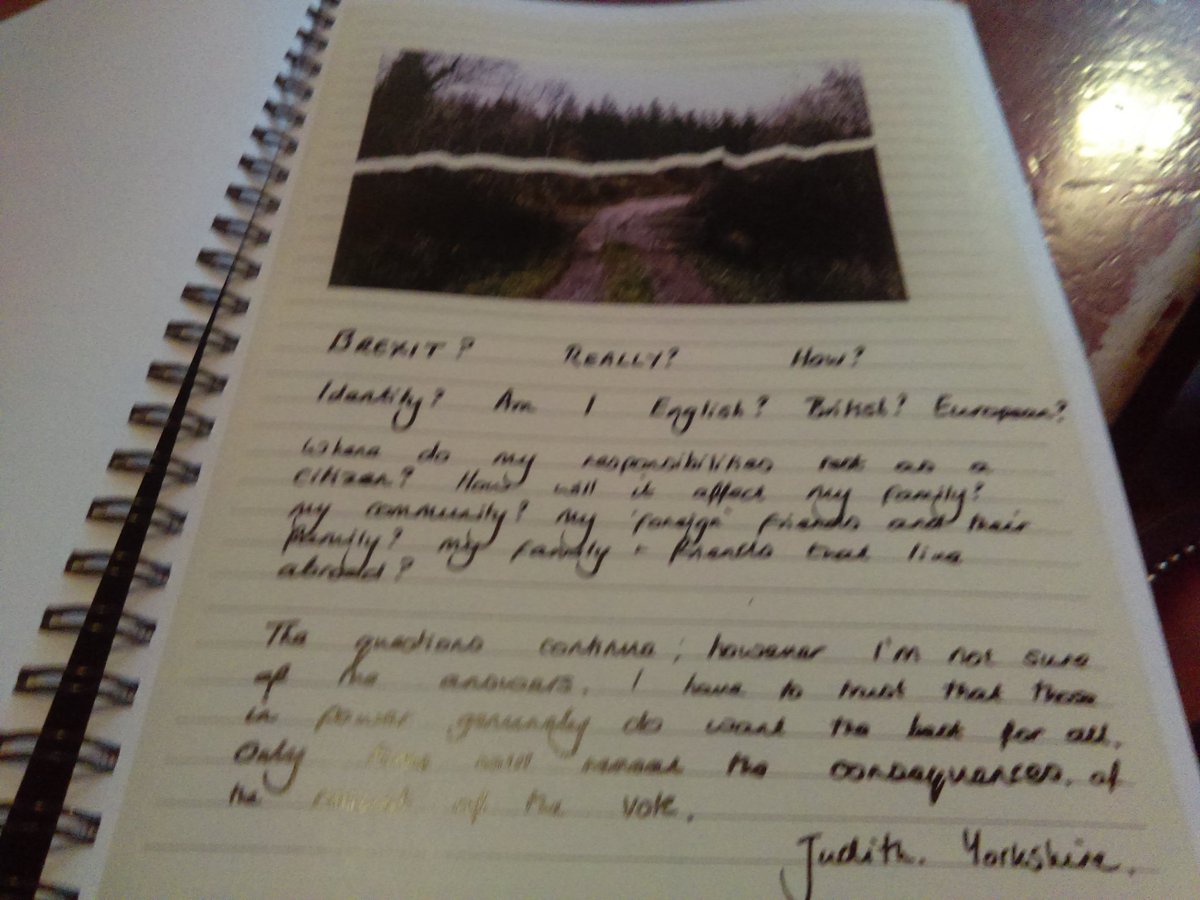 BREXIT? REALLY? How?
Identity? Am I English? British? European?
Where do my responsibilities rest as a
citizen? How will it affect my family?
my community? my 'foreign' friends and their
family? my family + friends that live
abroad?
The questions continue; however I'm not sure
of the answers. I have to trust that those
in power genuinely do want the best for all.
Only time will reveal the consequences. of
the result of the vote.
Judith. Yorkshire.